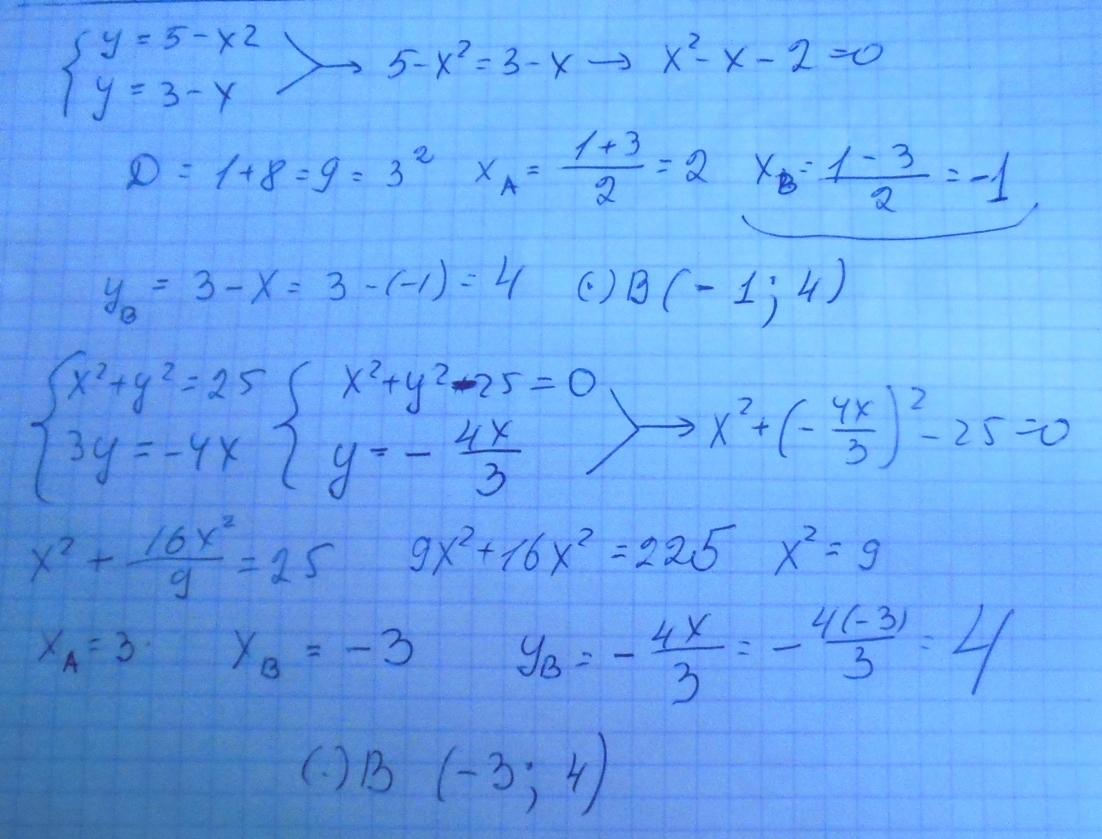 { y = 5 - x² → 5 - x² = 3 - x → x² - x - 2 = 0
{ y = 3 - x
D = 1 + 8 = 9 = 3² x_A = (1 + 3)/2 = 2 x_B = (1 - 3)/2 = -1
y_B = 3 - x = 3 - (-1) = 4 (·) B (-1; 4)
{ x² + y² = 25 { x² + y² - 25 = 0 → x² + (-4x/3)² - 25 = 0
{ 3y = -4x { y = -4x/3
x² + 16x²/9 = 25 9x² + 16x² = 225 x² = 9
x_A = 3 x_B = -3 y_B = -4x/3 = -4(-3)/3 = 4
(·) B (-3; 4)